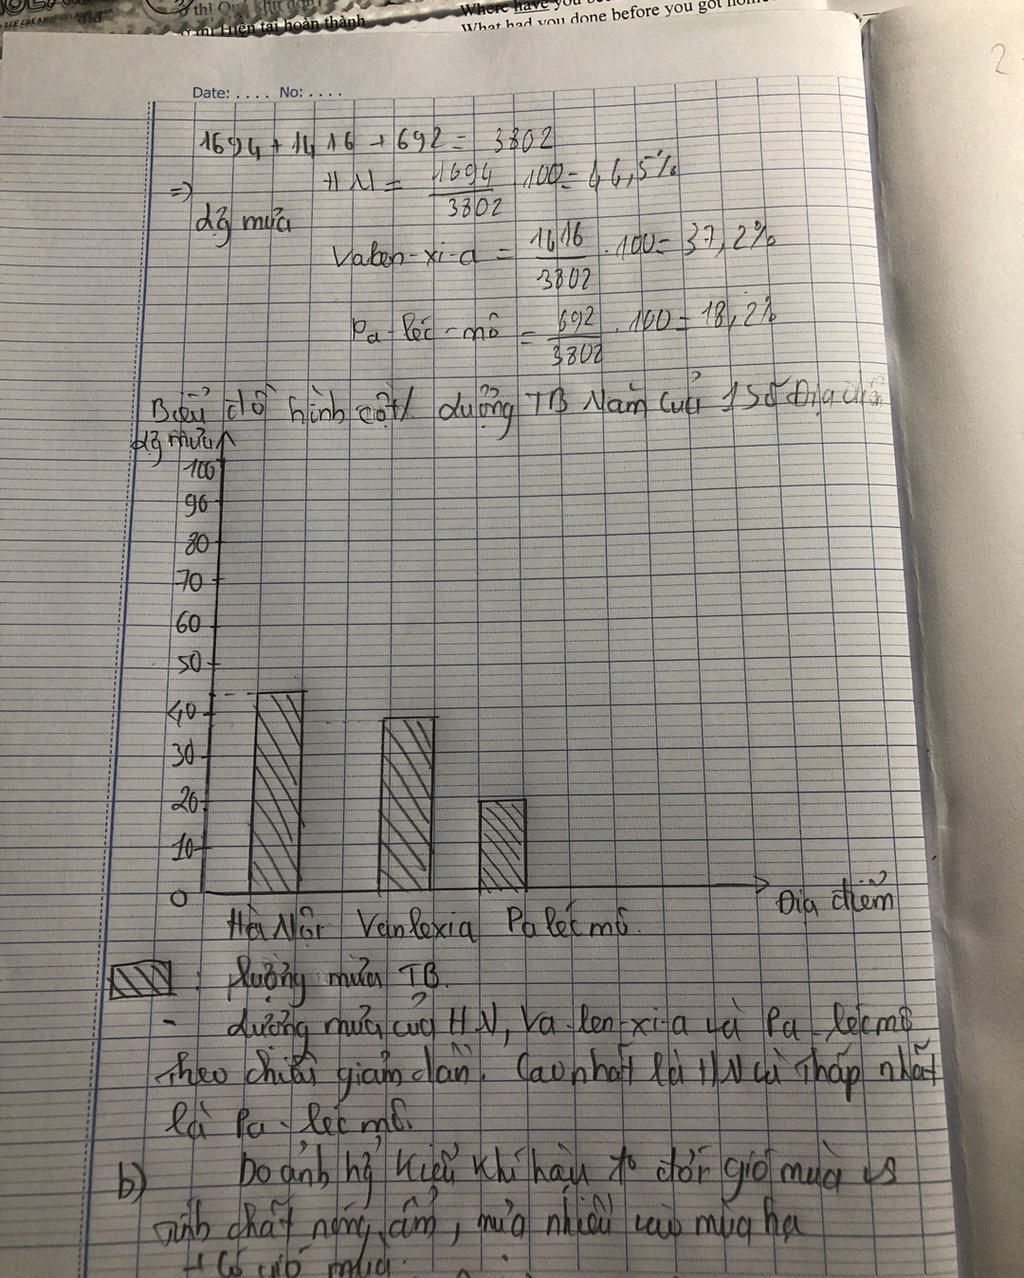 ở thị Quá
Where have you
thị Hiện tại hoàn thành
What had you done before you got home
2
Date: .... No: ....
1694 + 1416 + 692 = 3802
=> HN = 1694/3802 . 100 = 44,5%
lg mưa
Valen-xi-a = 1416/3802 . 100 = 37,2%
Pa-léc-mô = 692/3802 . 100 = 18,2%
Biểu đồ hình cột lượng TB Năm của 1 số Địa điểm
lg mưa
100
90
80
70
60
50
40
30
20
10
0
Địa điểm
Hà Nội Vanlexia Pa léc mô.
: lượng mưa TB.
- lượng mưa của HN, Va-len-xi-a và Pa-léc mô
theo chiều giảm dần. Cao nhất là HN và thấp nhất
là Pa-léc mô.
b) Do ảnh hg kiểu khí hậu to đới gió mùa vs
tính chất nóng, ẩm, mưa nhiều vào mùa hạ
+ Có gió mùa.